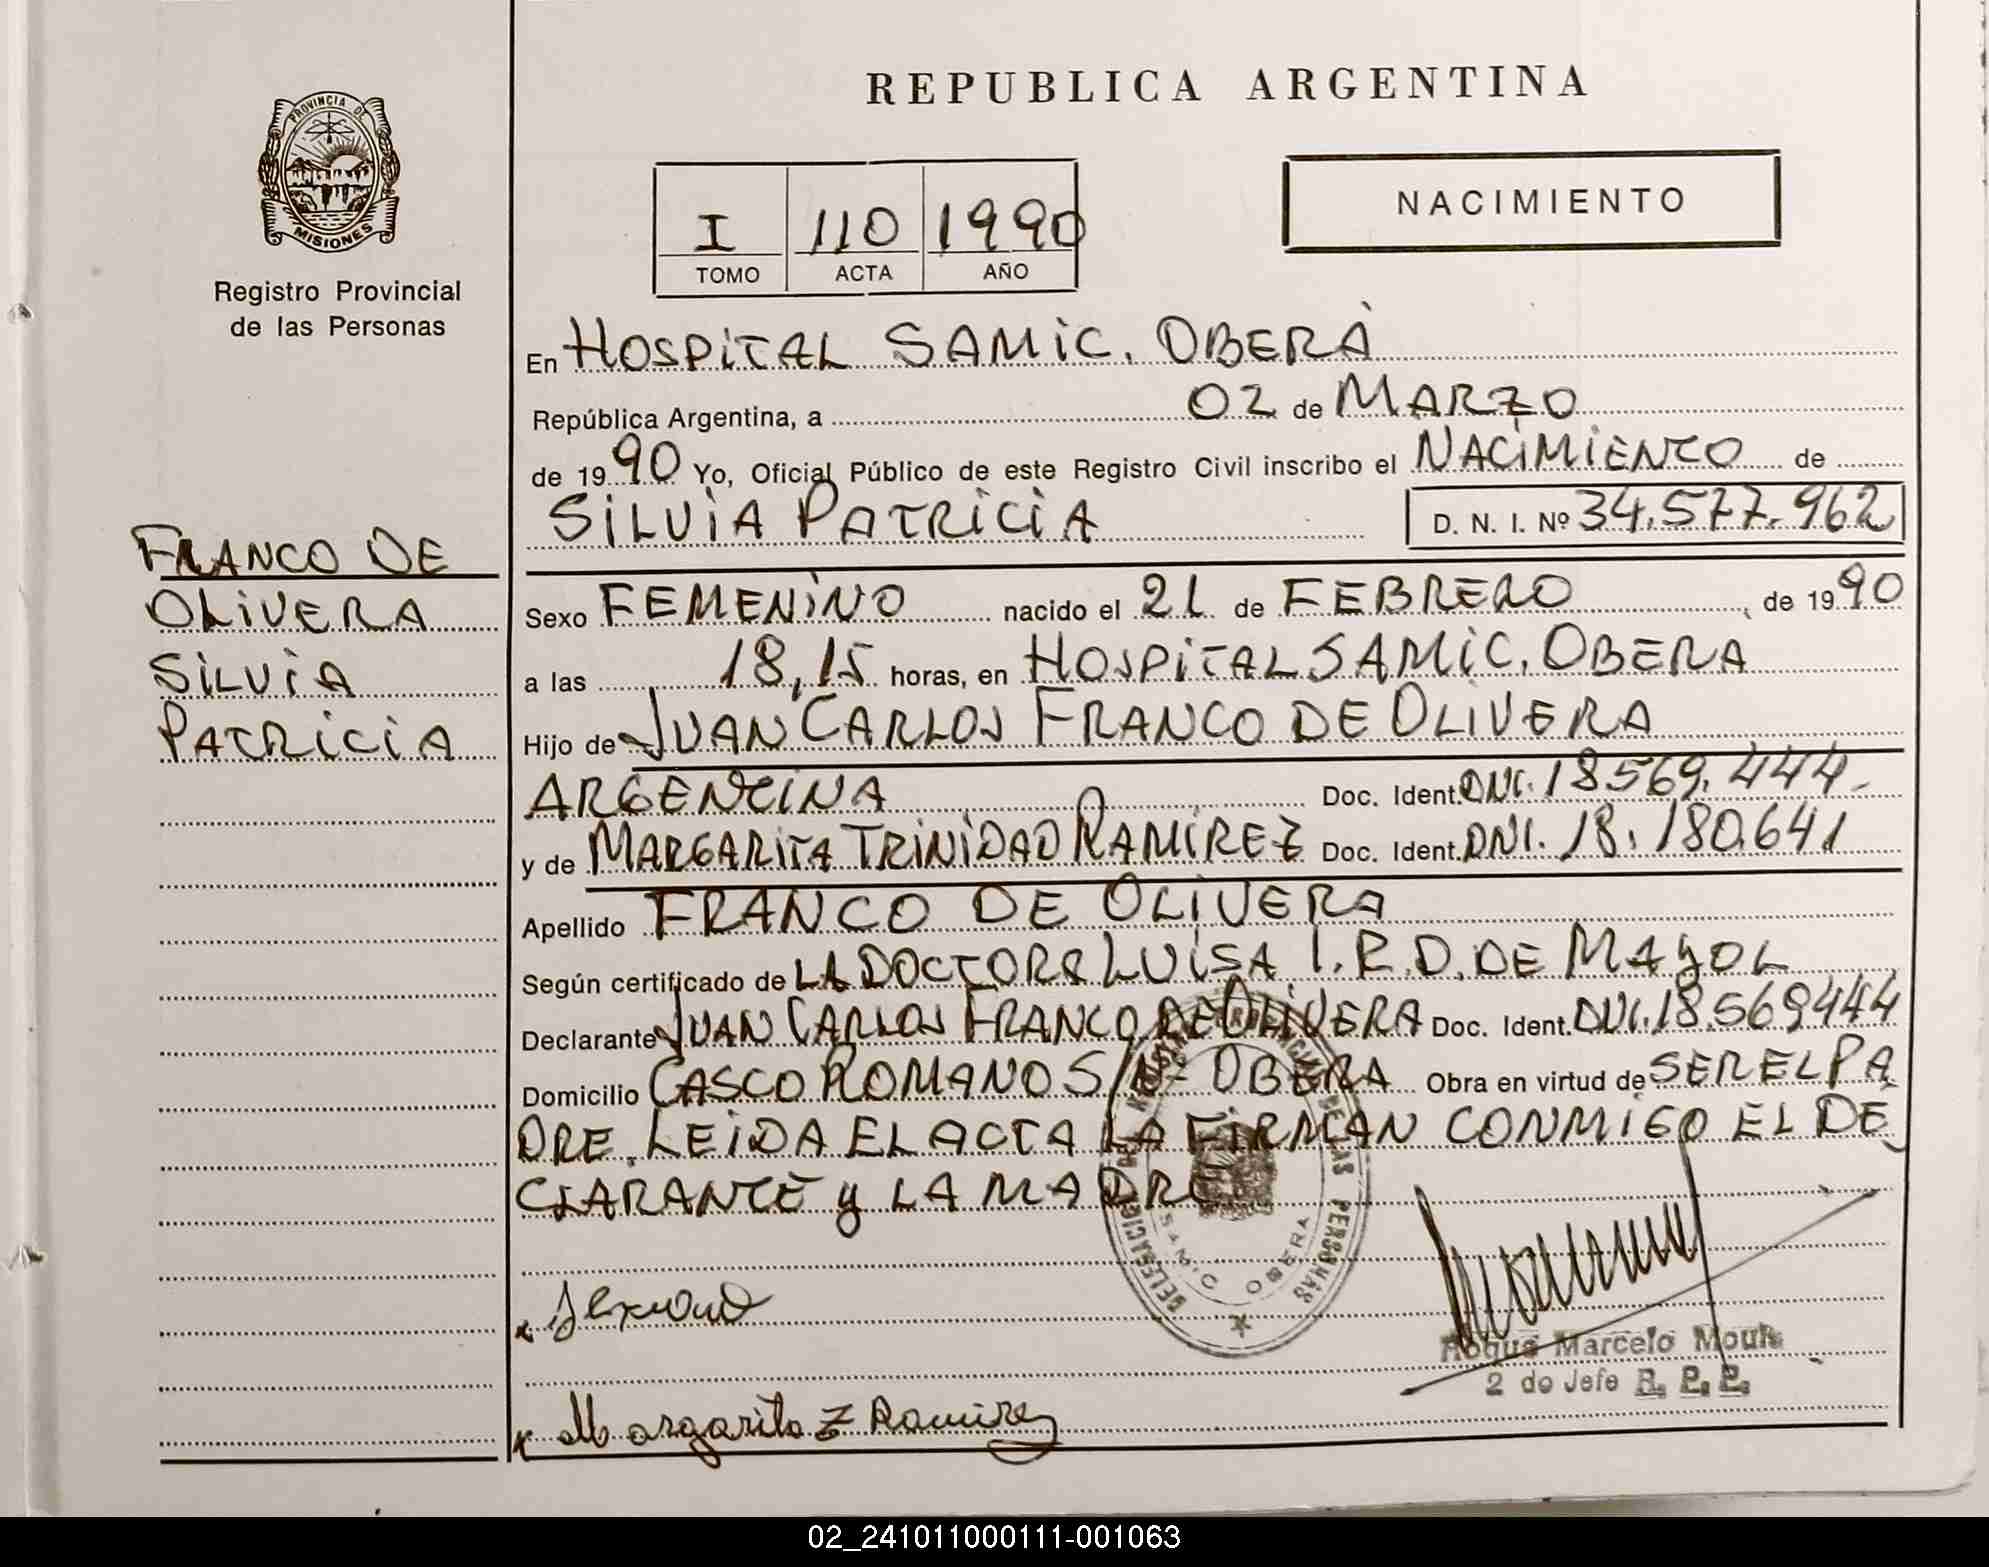 PROVINCIA DE
MISIONES
Registro Provincial
de las Personas
FRANCO DE
OLIVERA
SILVIA
PATRICIA
REPUBLICA ARGENTINA
I 110 1990
TOMO ACTA AÑO
NACIMIENTO
En HOSPITAL SAMIC. OBERÁ
República Argentina, a 02 de MARZO
de 1990 Yo, Oficial Público de este Registro Civil inscribo el NACIMIENTO de
SILVIA PATRICIA D. N. I. Nº 34.577.962
Sexo FEMENINO nacido el 21 de FEBRERO, de 1990
a las 18,15 horas, en HOSPITAL SAMIC. OBERA
Hijo de JUAN CARLOS FRANCO DE OLIVERA
ARGENTINA Doc. Ident. DNI. 18569.444-
y de MARGARITA TRINIDAD RAMIREZ Doc. Ident. DNI. 18.180.641
Apellido FRANCO DE OLIVERA
Según certificado de LA DOCTORA LUISA I.R.D. DE MAYOL
Declarante JUAN CARLOS FRANCO DE OLIVERA Doc. Ident. DNI. 18.569444
Domicilio CASCO ROMANO S/Nº OBERA Obra en virtud de SER EL PA
DRE. LEIDA EL ACTA LA FIRMAN CONMIGO EL DE
CLARANTE y LA MADRE
DELEGACION REGISTRO PROVINCIAL DE LAS PERSONAS
SAMIC. OBERA
Roque Marcelo
2 do Jefe R. P. P.
x Margarita T Ramirez
02_241011000111-001063